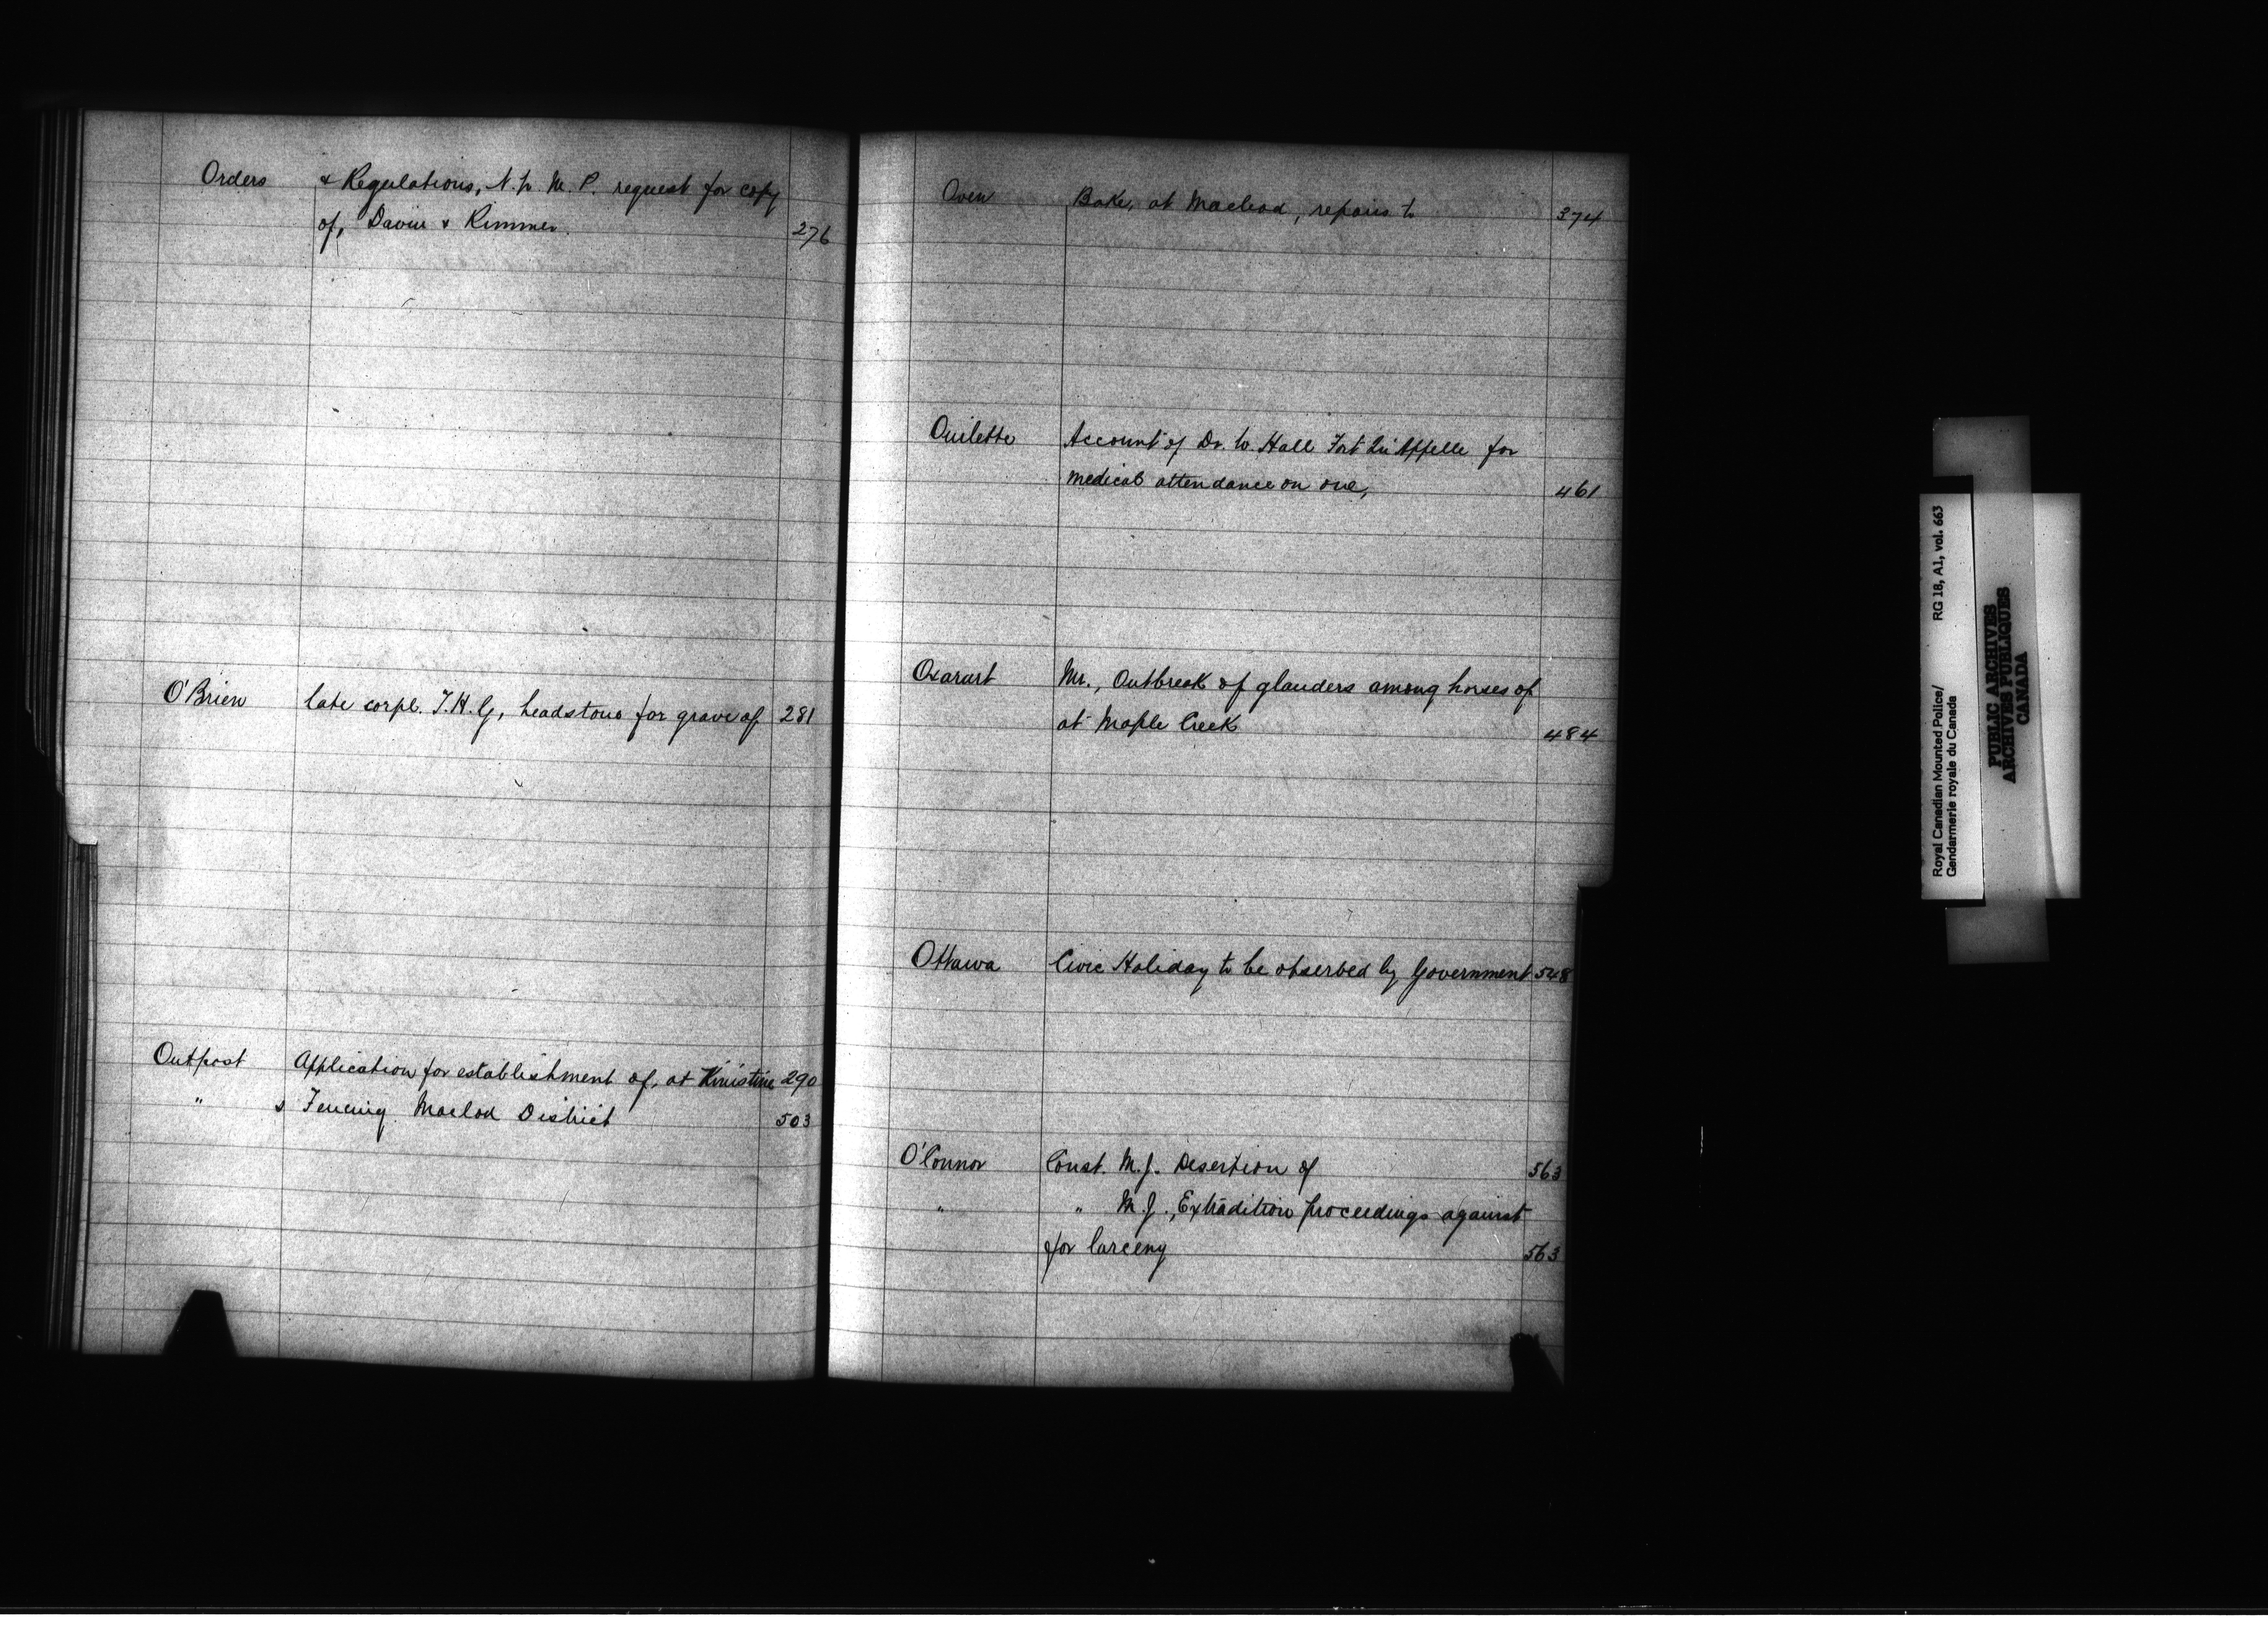 Orders & Regulations, N.W.M.P. request for copy
of, Davin & Rimmer. 276
O'Brien late corpl. T.H.G, headstone for grave of 281
Outpost Application for establishment of, at Kinistino 290
" s Fencing Macleod District 503
Oven Bake, at Macleod, repairs to 374
Ouilette Account of Dr. W. Hall Fort Qu'Appelle for
medical attendance on one, 461
Oxarart Mr., Outbreak of glanders among horses of
at Maple Creek 484
Ottawa Civic Holiday to be observed by Government 548
O'Connor Const. M.J. Desertion of 563
" " M.J., Extradition proceedings against
for larceny 563
Royal Canadian Mounted Police/ RG 18, A1, vol. 663
Gendarmerie royale du Canada
PUBLIC ARCHIVES
ARCHIVES PUBLIQUES
CANADA